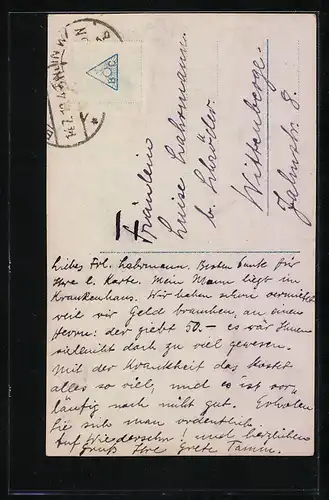 Fräulein
Luise Lahrmann.
b. Schröder.
Wittenberge.
Jahnstr. 8.
Liebes Frl. Lahrmann. Besten Dank für
Ihre l. Karte. Mein Mann liegt im
Krankenhaus. Wir haben schon vermietet
weil wir Geld brauchen, an einen
Herrn: der giebt 50.- es wär Ihnen
vielleicht doch zu viel gewesen.
Mit der Krankheit das kostet
alles so viel, und es ist vor-
läufig noch nicht gut. Erholen
Sie sich man ordentlich
Auf Wiedersehn! und herzlichen
Gruß Ihre Grete Tamm.